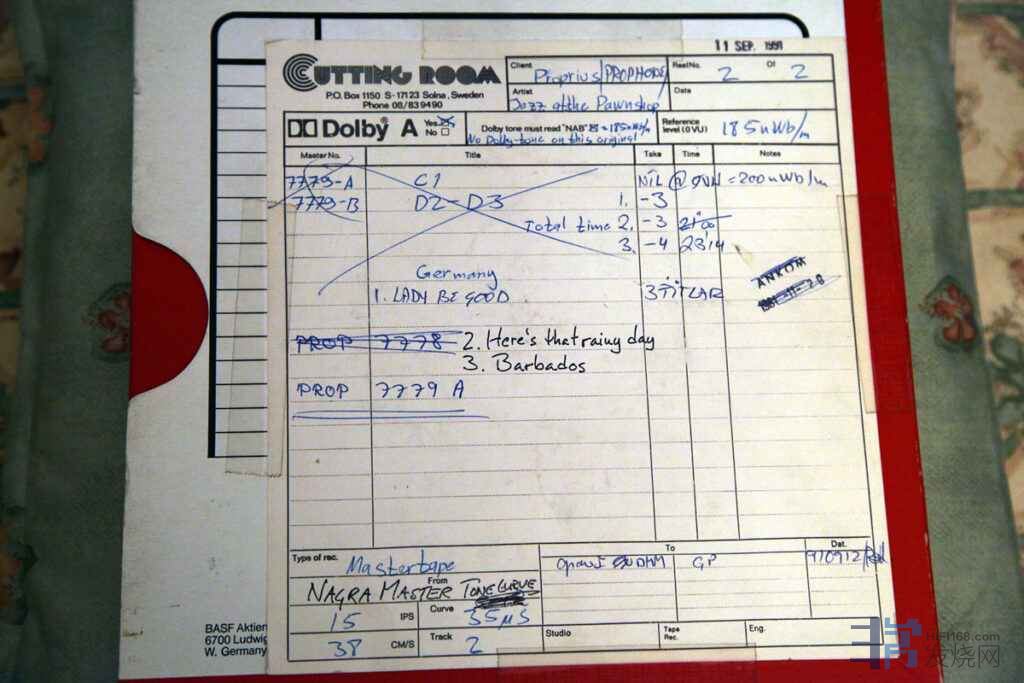 11 SEP. 1991
CUTTING ROOM
P.O. Box 1150 S-171 23 Solna, Sweden
Phone 08/83 94 90
Client Proprius/PROPHONE
Reel No. 2 Of 2
Artist Jazz at the Pawnshop
Date
Dolby A Yes No
Dolby tone must read "NAB" = 185nWb/m
No Dolby-tone on this original
Reference level (0 VU) 185nWb/m
Master No. Title Take Time Notes
7779-A C1 NIL @ = 200nWb/m
7779-B D2-D3 1. -3
Total time 2. -3 21'00
3. -4 23'14
Germany
1. LADY BE GOOD 3 TITLAR
ANKOM
PROP 7778 2. Here's that rainy day
3. Barbados
PROP 7779 A
Type of rec. Mastertape
To GP
Dat. 910912
From NAGRA MASTER TONE CURVE
15 IPS
Curve 35μS
38 CM/S
Track 2
Studio
Tape Rec.
Eng.
BASF Aktien
6700 Ludwig
W. Germany
HiFi168.com
发烧网